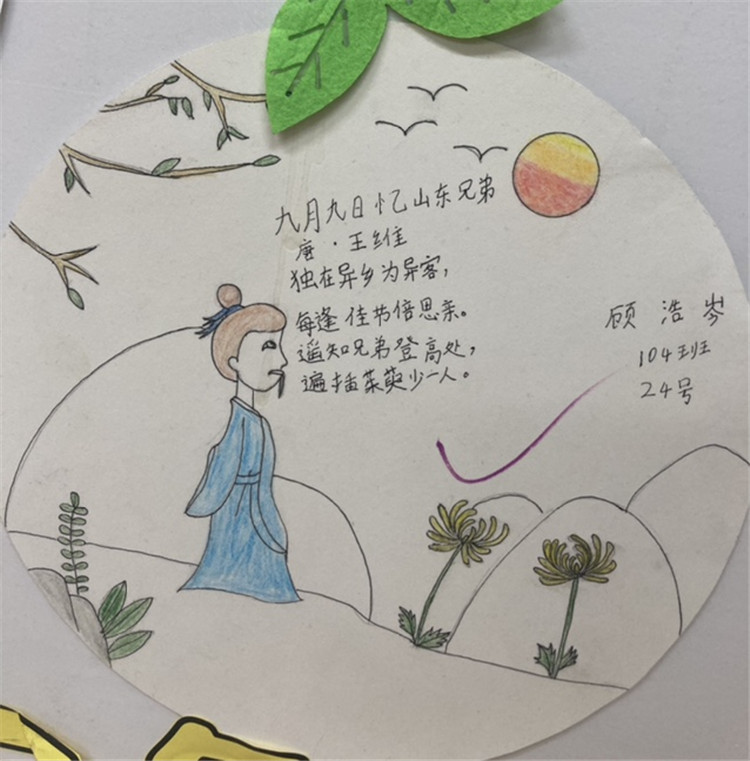 九月九日忆山东兄弟
唐·王维
独在异乡为异客，
每逢佳节倍思亲。
遥知兄弟登高处，
遍插茱萸少一人。
顾浩岑
104班
24号